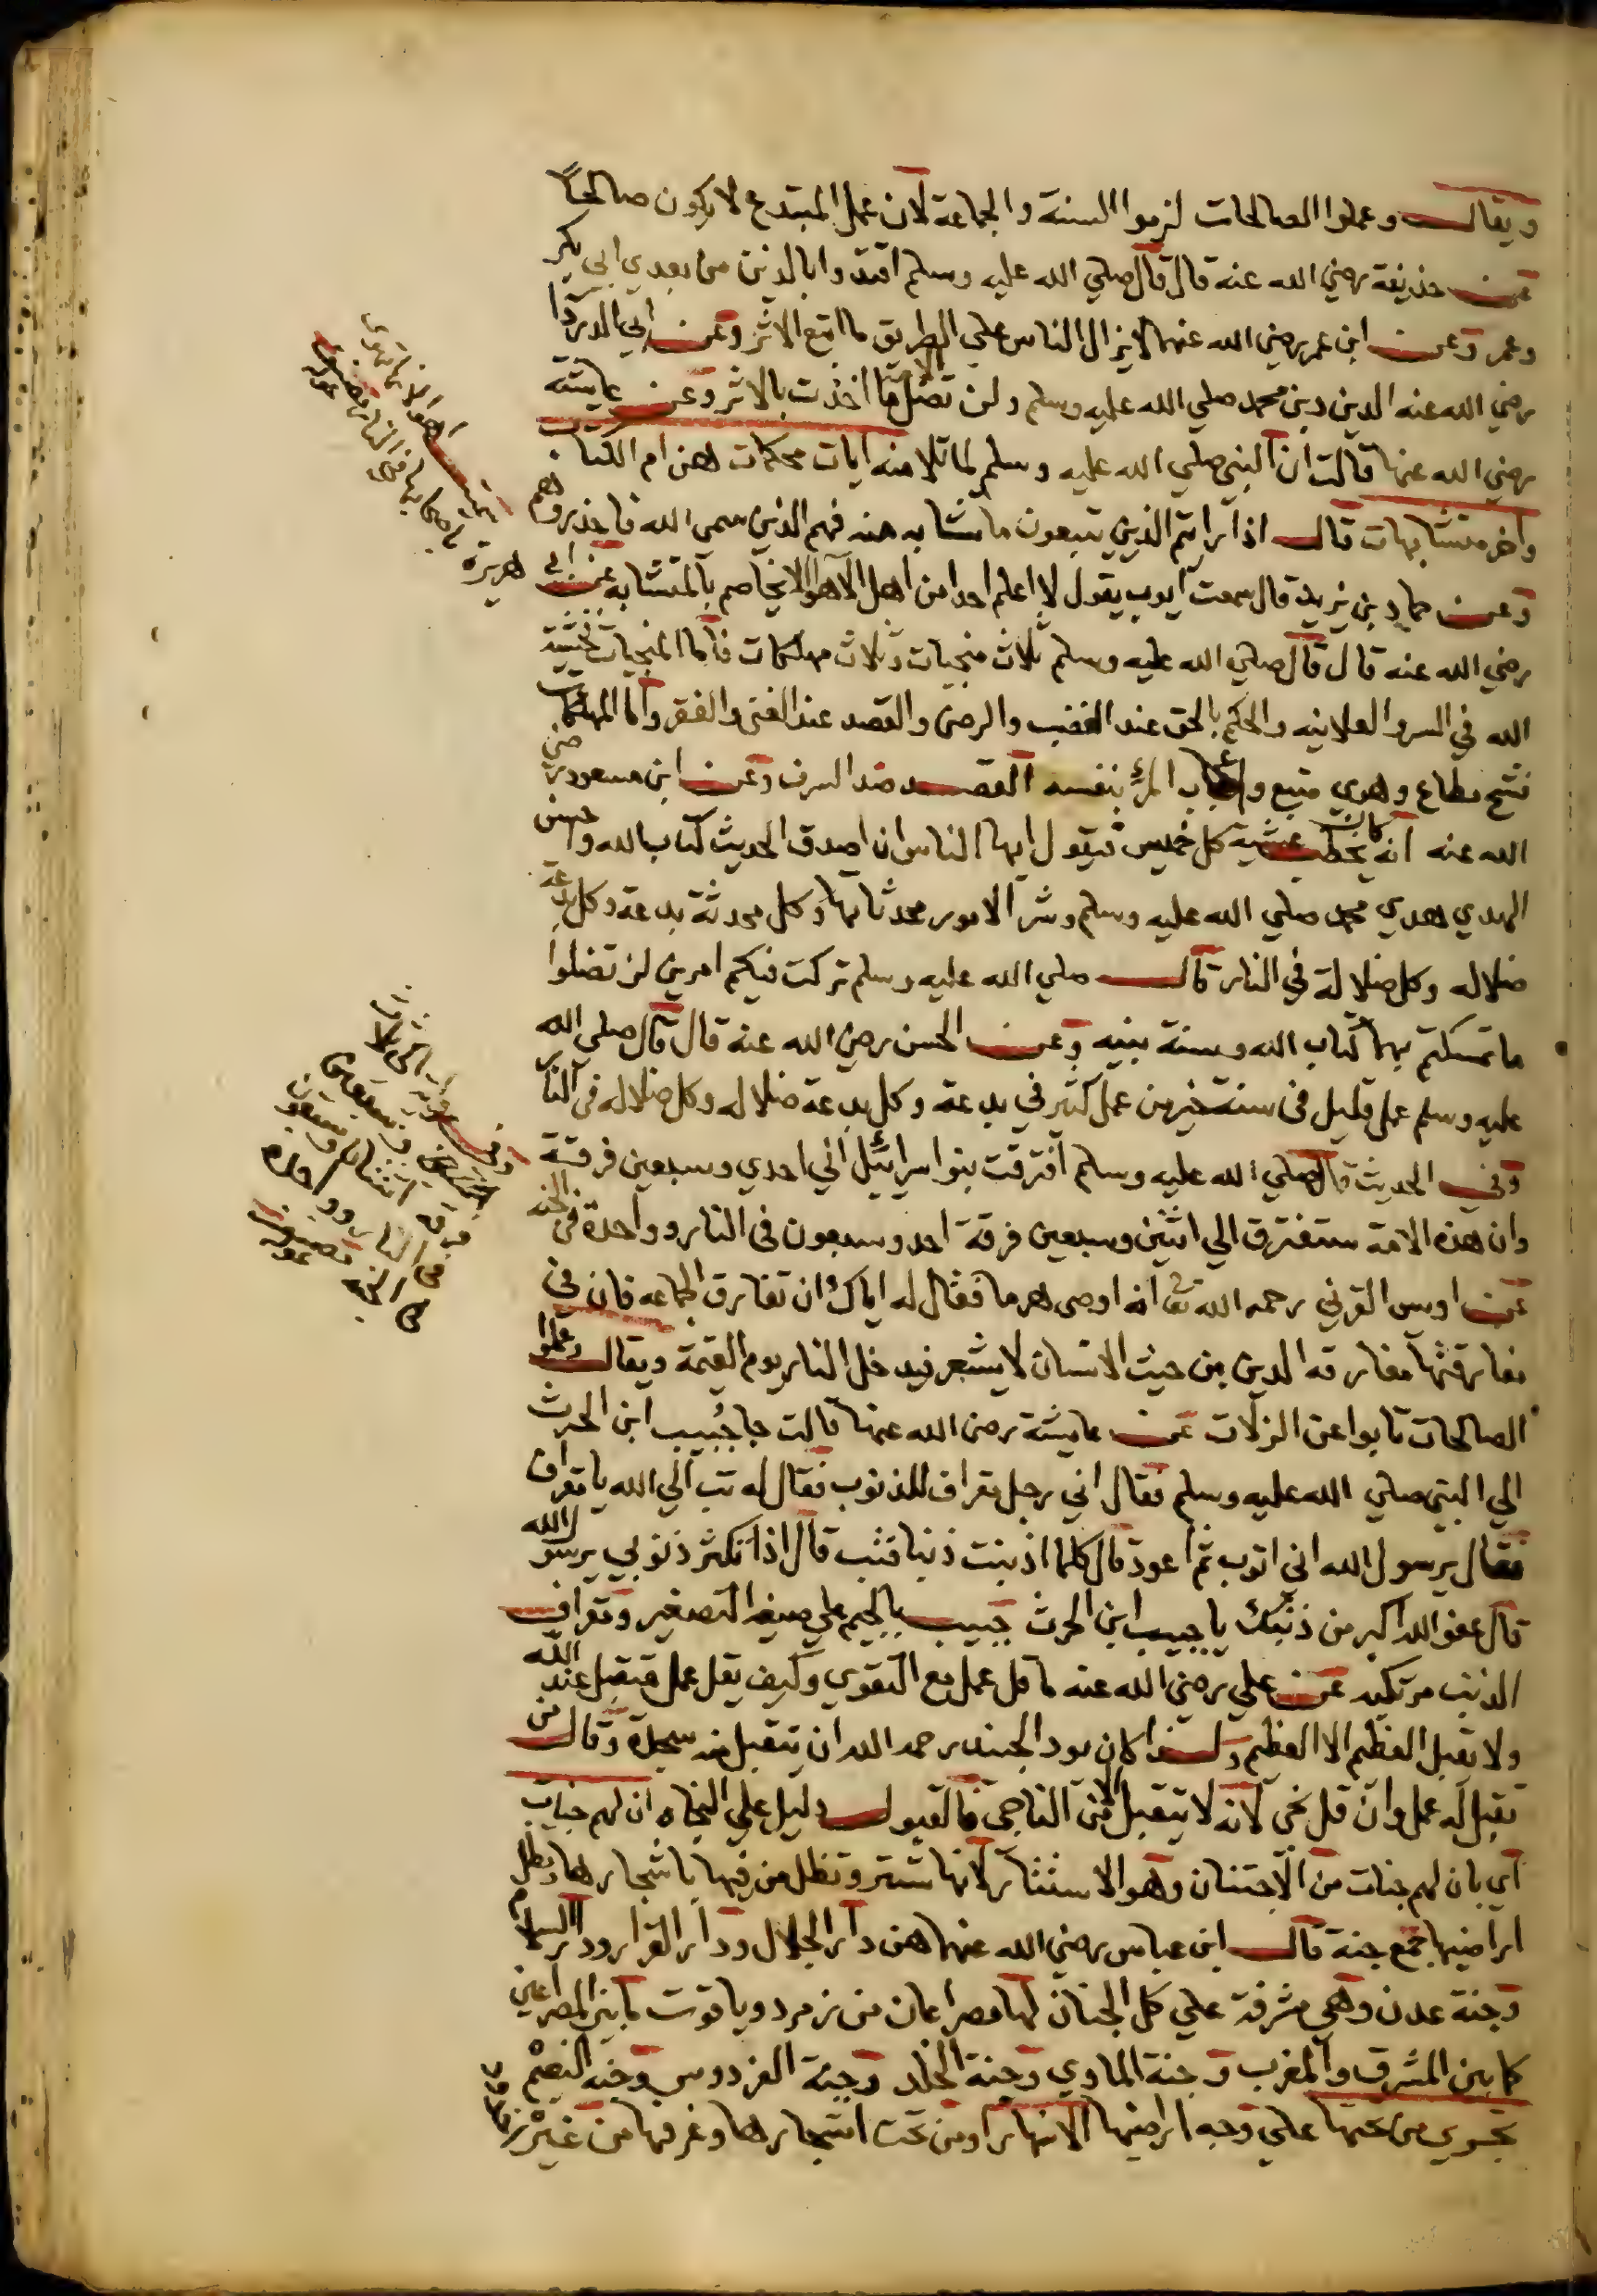 ويقال وعملوا الصالحات لزموا السنة والجماعة لان عمل المبتدع لا يكون صالحاً
عن حذيفة رضي الله عنه قال قال صلي الله عليه وسلم اقتدوا بالذين من بعدي ابي بكر
وعمر وعن ابن عمر رضي الله عنهما لا يزال الناس علي الطريق ما اتبع الاثر وعن ابي الدردا
رضي الله عنه الدين دين محمد صلي الله عليه وسلم ولن تضل الامة ما اخذت بالاثر وعن عايشة
رضي الله عنها قالت ان النبي صلي الله عليه وسلم لما تلا منه ايات محكمات هن ام الكتاب
واخر متشابهات قال اذا رايتم الذين يتبعون ما تشابه منه فهم الذين سمي الله فاحذروهم
وعن حماد بن يزيد قال سمعت ايوب يقول لا اعلم احدا من اهل الاهوا الا يخاصم بالمتشابه عن ابي هريرة
رضي الله عنه قال قال صلي الله عليه وسلم ثلاث منجيات وثلاث مهلكات فاما المنجيات خشية
الله في السر والعلانيه والحكم بالحق عند الغضب والرضى والقصد عند الغنى والفقر واما المهلكات
فشح مطاع وهوي متبع واعجاب المرء بنفسه القصد ضد السرف وعن ابن مسعود رضي
الله عنه انه كان يخطب عشية كل خميس فيقول ايها الناس ان اصدق الحديث كتاب الله واحسن
الهدي هدي محمد صلي الله عليه وسلم وشر الامور محدثاتها وكل محدثة بدعة وكل بدعة
ضلاله وكل ضلالة في النار قال صلي الله عليه وسلم تركت فيكم امرين لن تضلوا
ما تمسكتم بهما كتاب الله وسنة نبيه وعن الحسن رضي الله عنه قال قال صلي الله
عليه وسلم عمل قليل في سنة خير من عمل كثير في بدعة وكل بدعة ضلاله وكل ضلاله في النار
وفي الحديث قال صلي الله عليه وسلم افترقت بنوا سرائيل الي احدي وسبعين فرقة
وان هذه الامة ستفترق الي اثنين وسبعين فرقة احد وسبعون في النار وواحدة في الجنه
عن اويس القرني رحمه الله تعا انه اوصى هرما فقال له اياك ان تفارق الجماعه فان في
مفارقتها مفارقه الدين من حيث الانسان لا يشعر فيدخل النار يوم القيمة ويقال وعملوا
الصالحات تابوا عن الزلات عن عايشة رضي الله عنها قالت جا جبيب ابن الحرث
الي النبي صلي الله عليه وسلم فقال اني رجل مقراف للذنوب فقال له تب الي الله يا مقراف
فقال يرسول الله اني اتوب ثم اعود قال كلما اذنبت ذنبا فتب قال اذا تكثر ذنوبي يرسول الله
قال عفو الله اكبر من ذنبك يا جبيب ابن الحرث جبيب بالجيم علي صيغه التصغير ومقراف
الذنب مرتكبه عن علي رضي الله عنه ما قل عمل مع التقوي وكيف يقل عمل متقبل عند الله
ولا يقبل العظيم الا العظيم ولهذا كان يود الجنيد رحمه الله ان يتقبل منه سجدة وقال من
تقبل له عمل وان قل نجى لانه لا يتقبل الا من الناجى فالقبول دليل علي النجاه ان لهم جنات
اي بان لهم جنات من الاجتنان وهو الاستتار لانها تستر وتظل من فيها باشجارها وبظل
اراضيها جمع جنة قال ابن عباس رضي الله عنهما هن دار الجلال ودار القرار ودار السلام
وجنة عدن وهي مشرفة علي كل الجنان لها مصراعان من زمرد وياقوت ما بين المصراعين
كما بين المشرق والمغرب وجنة الماوي وجنة الخلد وجنة الفردوس وجنه النعيم
تجري من تحتها علي وجه اراضيها الانهار او من تحت اشجارها وغرفها من غير
اهوا الا نها تهوى
باصحابها في النار
فرقه اثنتان وسبعون
في النار وواحده
في الجنه